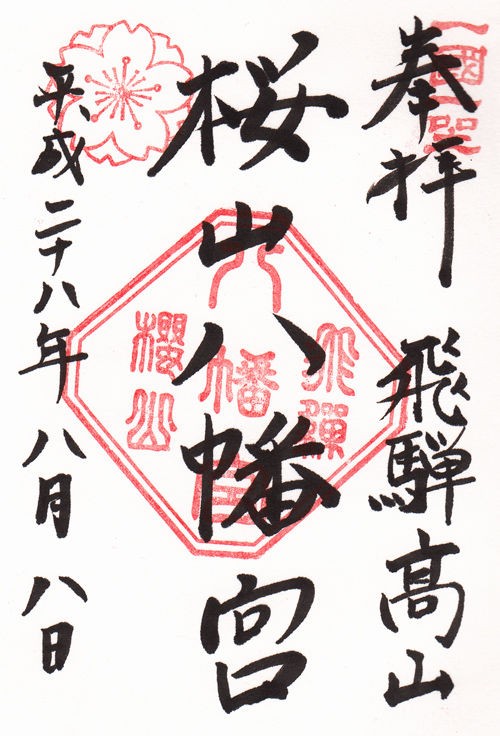 奉拝 飛騨高山
桜山八幡宮
平成二十八年八月八日
一國一社
飛騨
八幡宮
櫻山